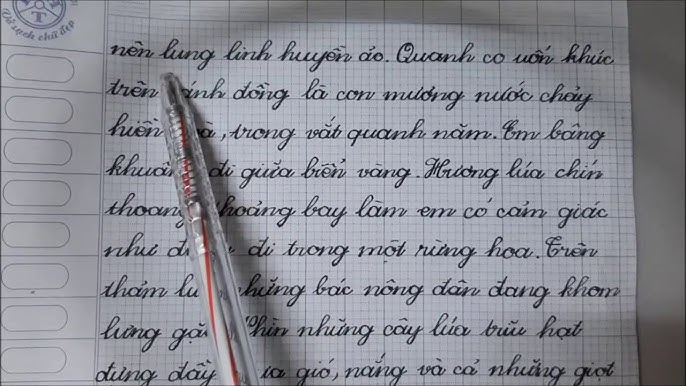 Vở sạch chữ đẹp
nên lung linh huyền ảo. Quanh co uốn khúc
trên cánh đồng là con mương nước chảy
hiền hoà, trong vắt quanh năm. Em bâng
khuâng đi giữa biển vàng. Hương lúa chín
thoang thoảng bay làm em có cảm giác
như đi trong một rừng hoa. Trên
thảm lúa những bác nông dân đang khom
lưng gặt. Nhìn những cây lúa trĩu hạt
đung gió, nắng và cả những giọt